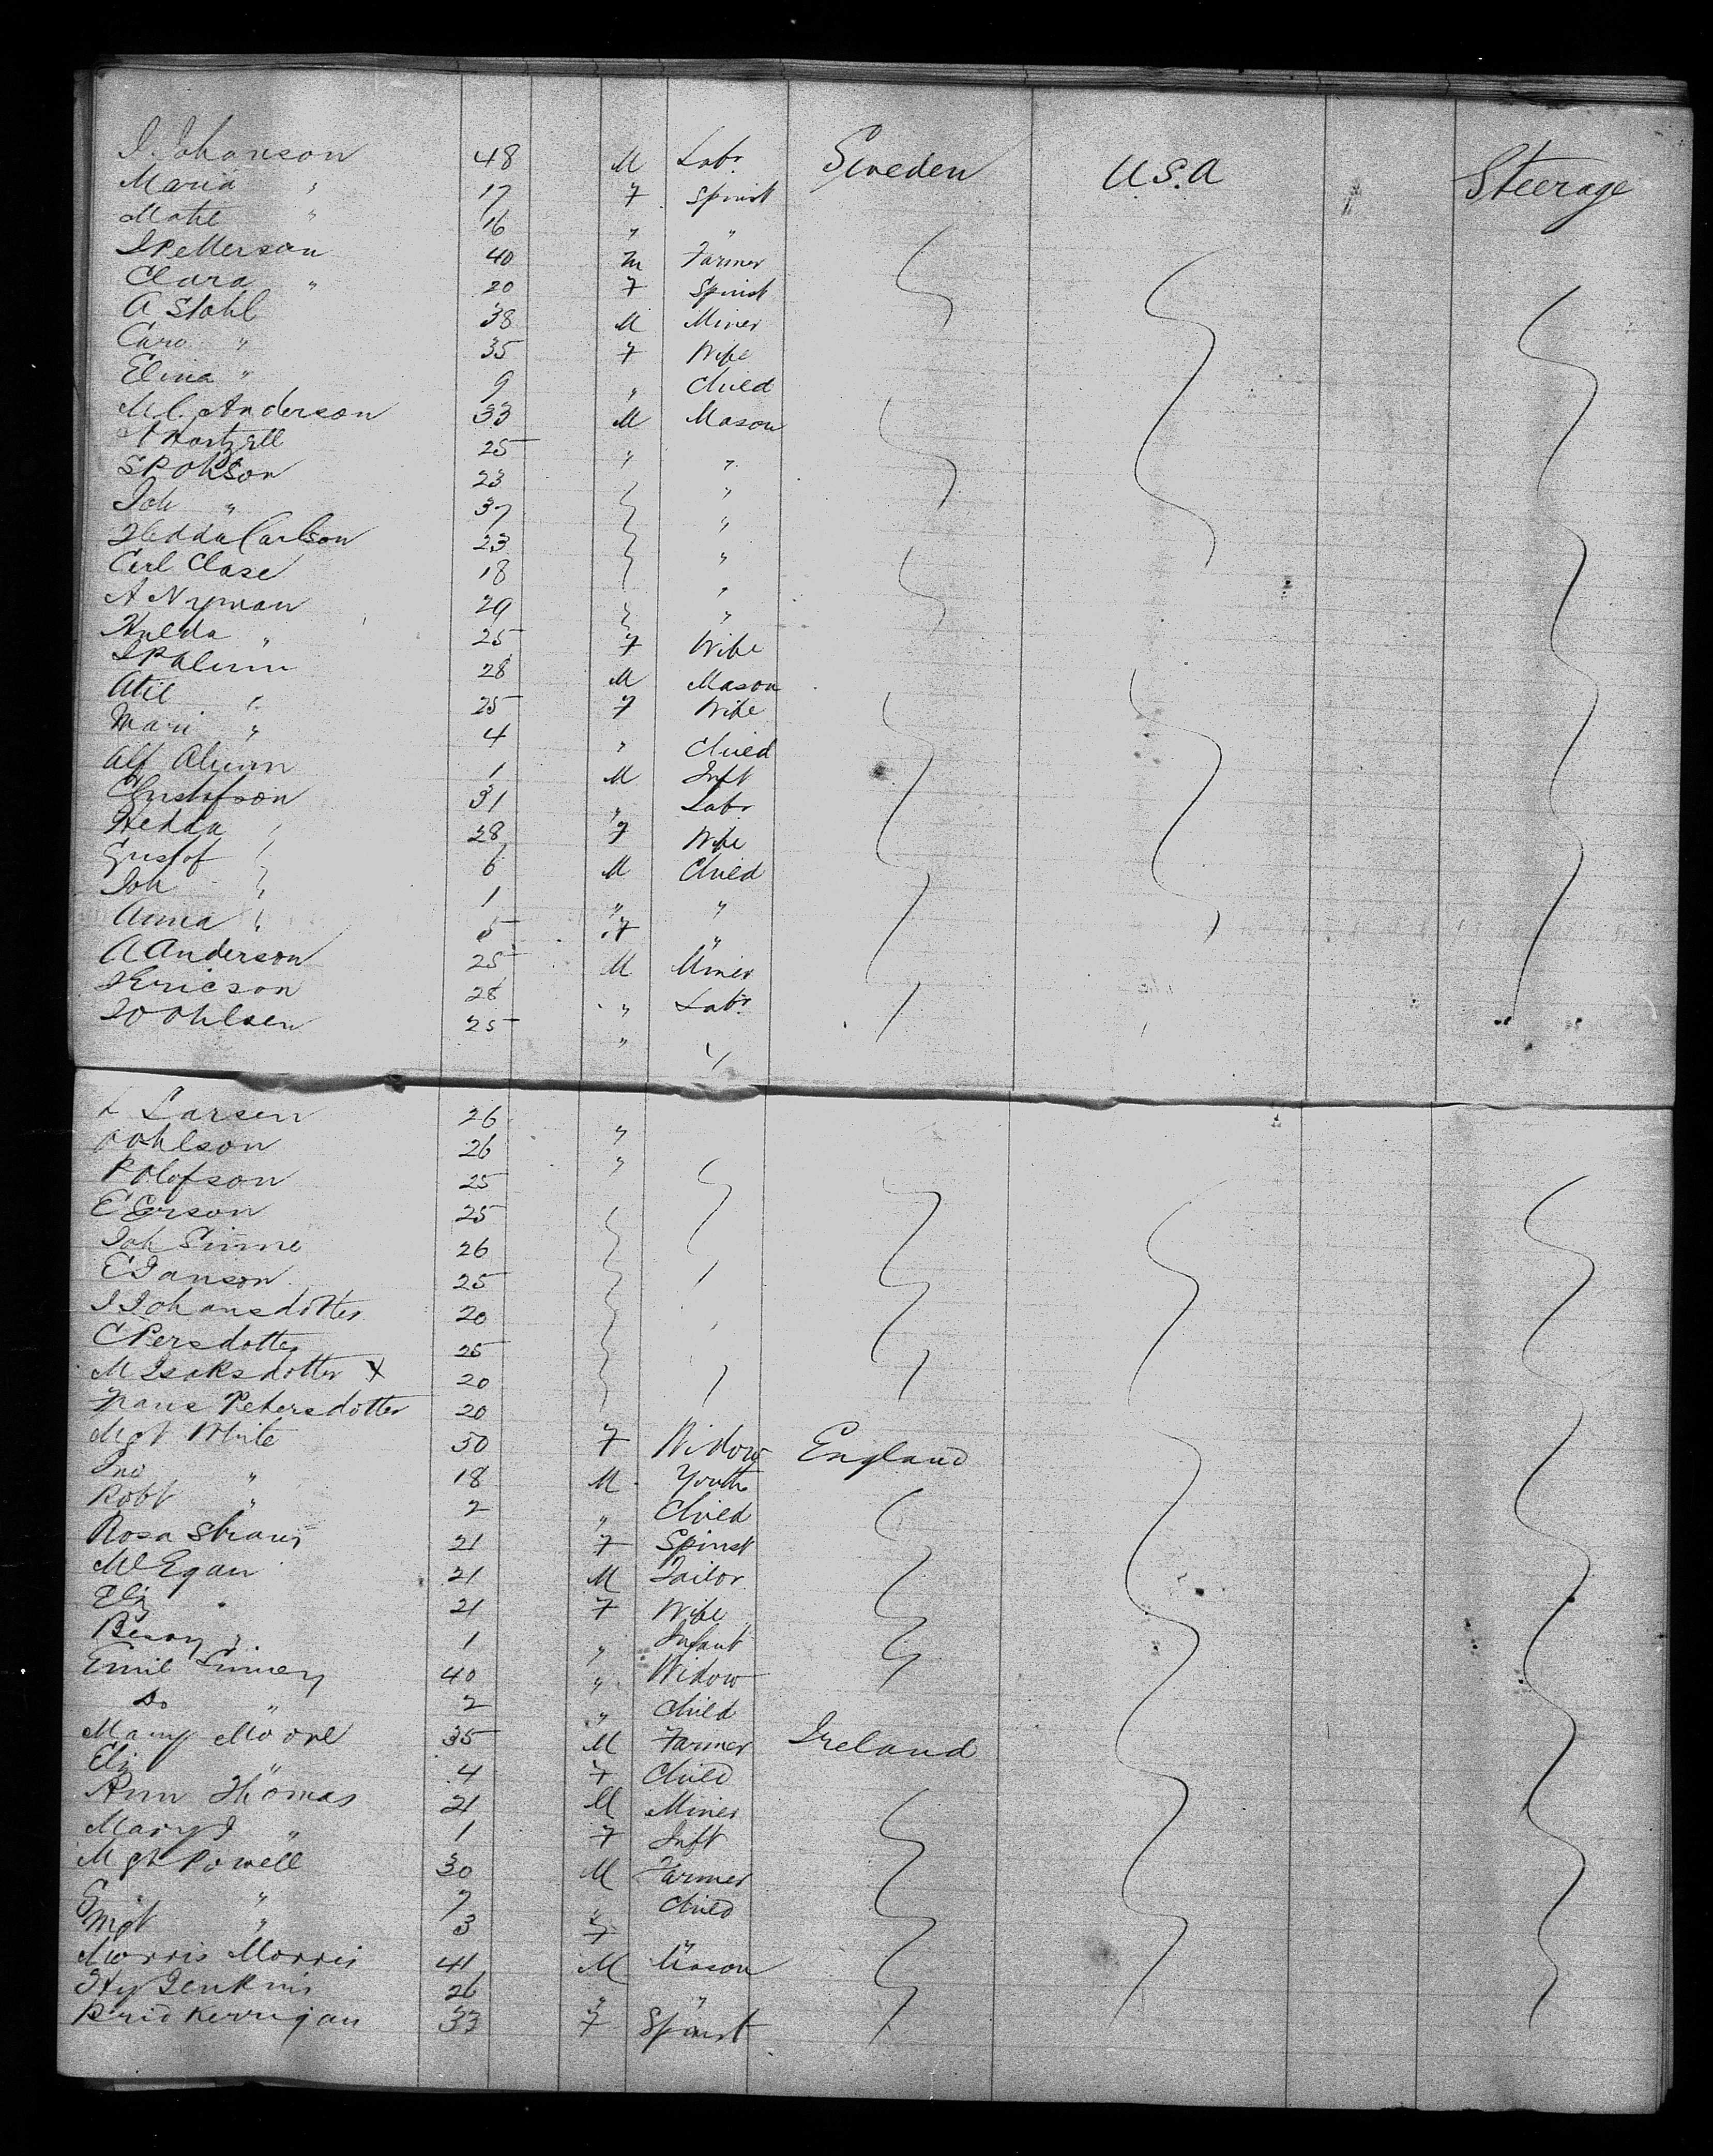 I. Johanson 48 M Labr. Sweden U.S.A Steerage
Maria " 17 F Spinst
Matil " 16 " "
I Petterson 40 M Farmer
Clara " 20 F Spinst
A Stahl 38 M Miner
Caro " 35 F Wife
Elina " 9 " Child
M C. Anderson 33 M Mason
25 " "
S P Ohlson 23 "
Joh " 37 "
Hedda Carlson 23 "
Carl Clase 18 "
A Nyman 29 "
Hulda " 25 F Wife
28 M Mason
25 F Wife
Mari " 4 " Child
Alf 1 M Inft
C Gustafson 31 " Labr
Hedda " 28 F Wife
Gustof " 6 M Child
Joh " 1 " "
Anna " 5 F "
A Anderson 25 M Miner
Ericson 28 " Labr.
Ohlsen 25 " "
L Larsen 26 "
Ohlson 26 "
P Olofson 25
E Erson 25
Joh Sinne 26
E Janson 25
I Johansdotter 20
C Persdotter 25
M Isaksdotter X 20
Petersdotter 20
Mgt White 50 F Widow England
Jno " 18 M Youth
Robt " 2 " Child
Rosa 21 F Spinst
Egan 21 M Tailor
Eliz " 21 F Wife
1 " Infant
40 " Widow
Do " 2 " Child
Moore 35 M Farmer Ireland
Eliz " 4 F Child
Ann Thomas 21 M Miner
Mary J " 1 F Inft
Mgt Powell 30 M Farmer
" 7 " Child
Mgt " 3 F "
Morris Morris 41 M Mason
Hy Jenkins 26 " "
Brid Kerrigan 33 F Spinst